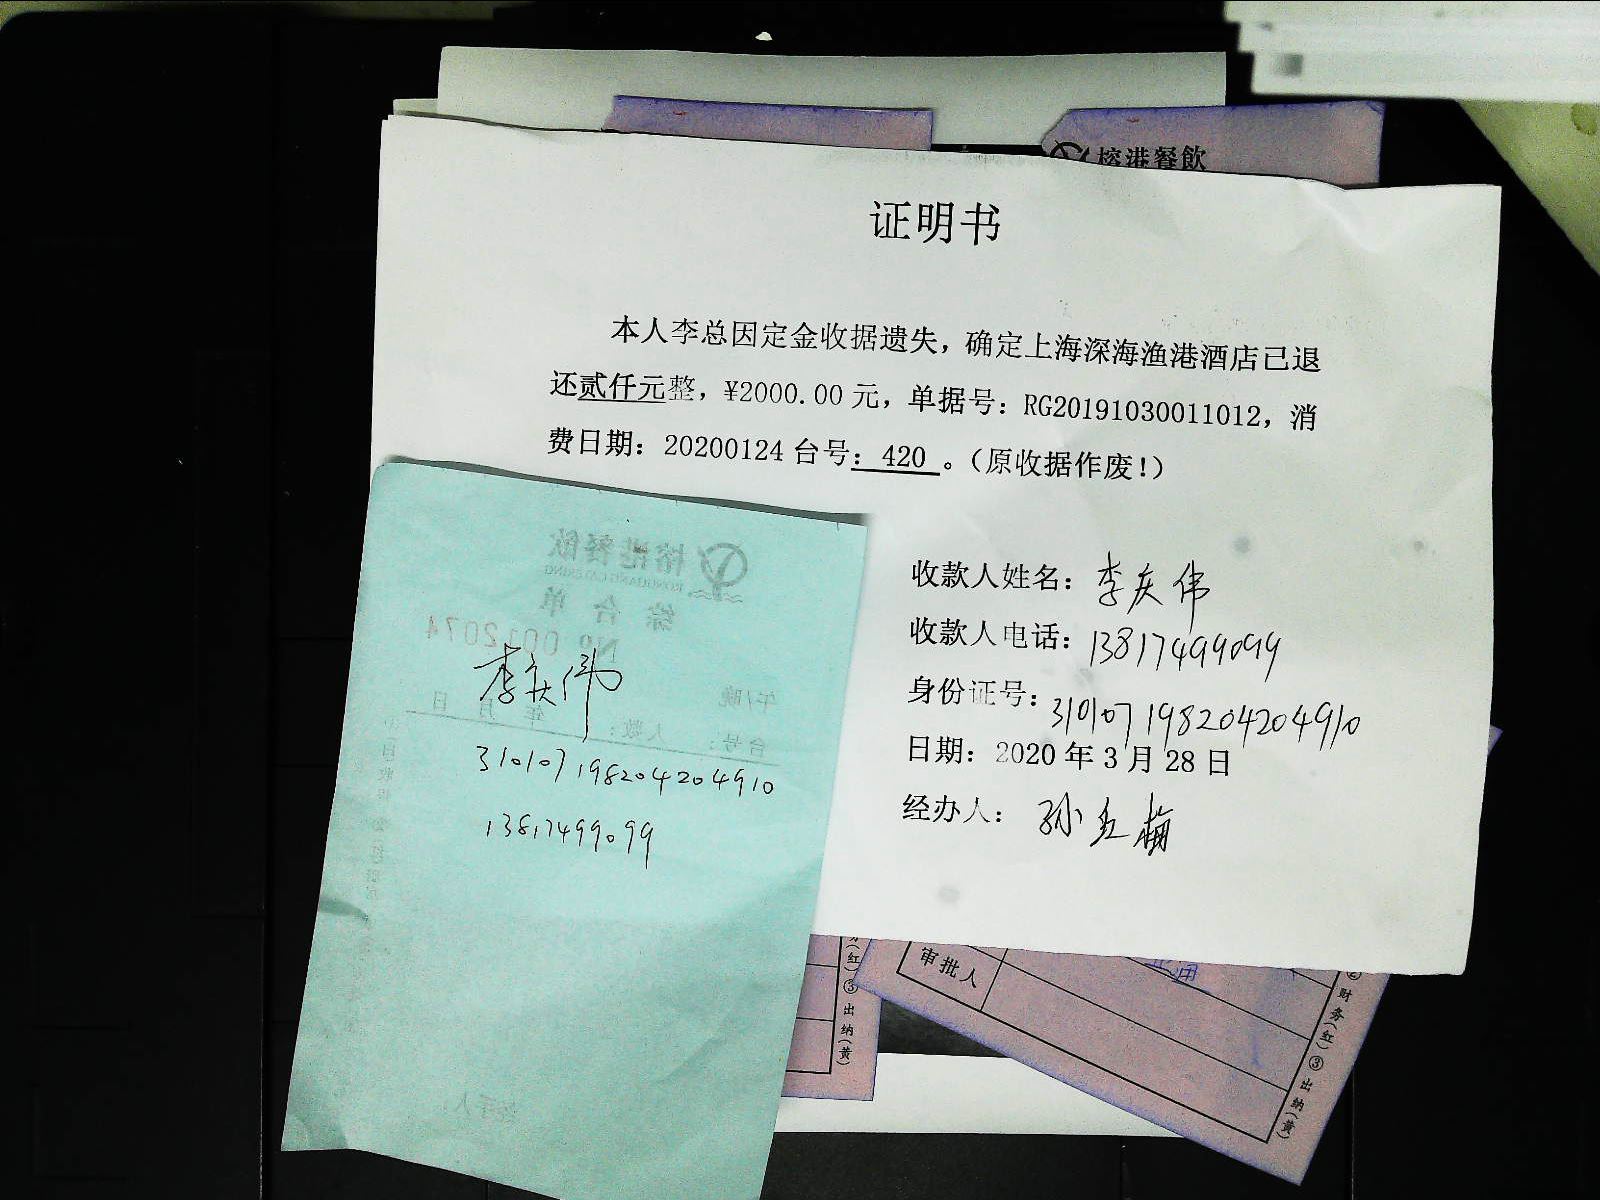 榕港餐飲
证明书
本人李总因定金收据遗失，确定上海深海渔港酒店已退
还贰仟元整，¥2000.00 元，单据号：RG20191030011012，消
费日期：20200124 台号：420 。（原收据作废！）
收款人姓名：李庆伟
收款人电话：13817499099
身份证号：310107198204204910
日期：2020 年 3 月 28 日
经办人：孙红梅
榕港餐飲
RONGGANG CATERING
综合单
Nº 0012074
午/晚
年 月 日
台号： 人数：
李庆伟
310107198204204910
13817499099
(红) ③ 出纳(黄)
审批人
② 财务(红) ③ 出纳(黄)